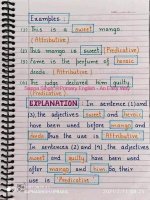 Examples :
(1) This is a sweet mango.
(Attributive)
(2) This mango is sweet (Predicative)
(3) Fame is the perfume of heroic
deeds. (Attributive)
(4) The judge declared him guilty
(Predicative)
EXPLANATION : In sentence (1) and
(3), the adjectives sweet and heroic
have been used before mango and
deeds. Thus the use is Attributive
In sentences (2) and (4), the adjectives
sweet and guilty have been used
after mango and him. So their
use is Predicative.